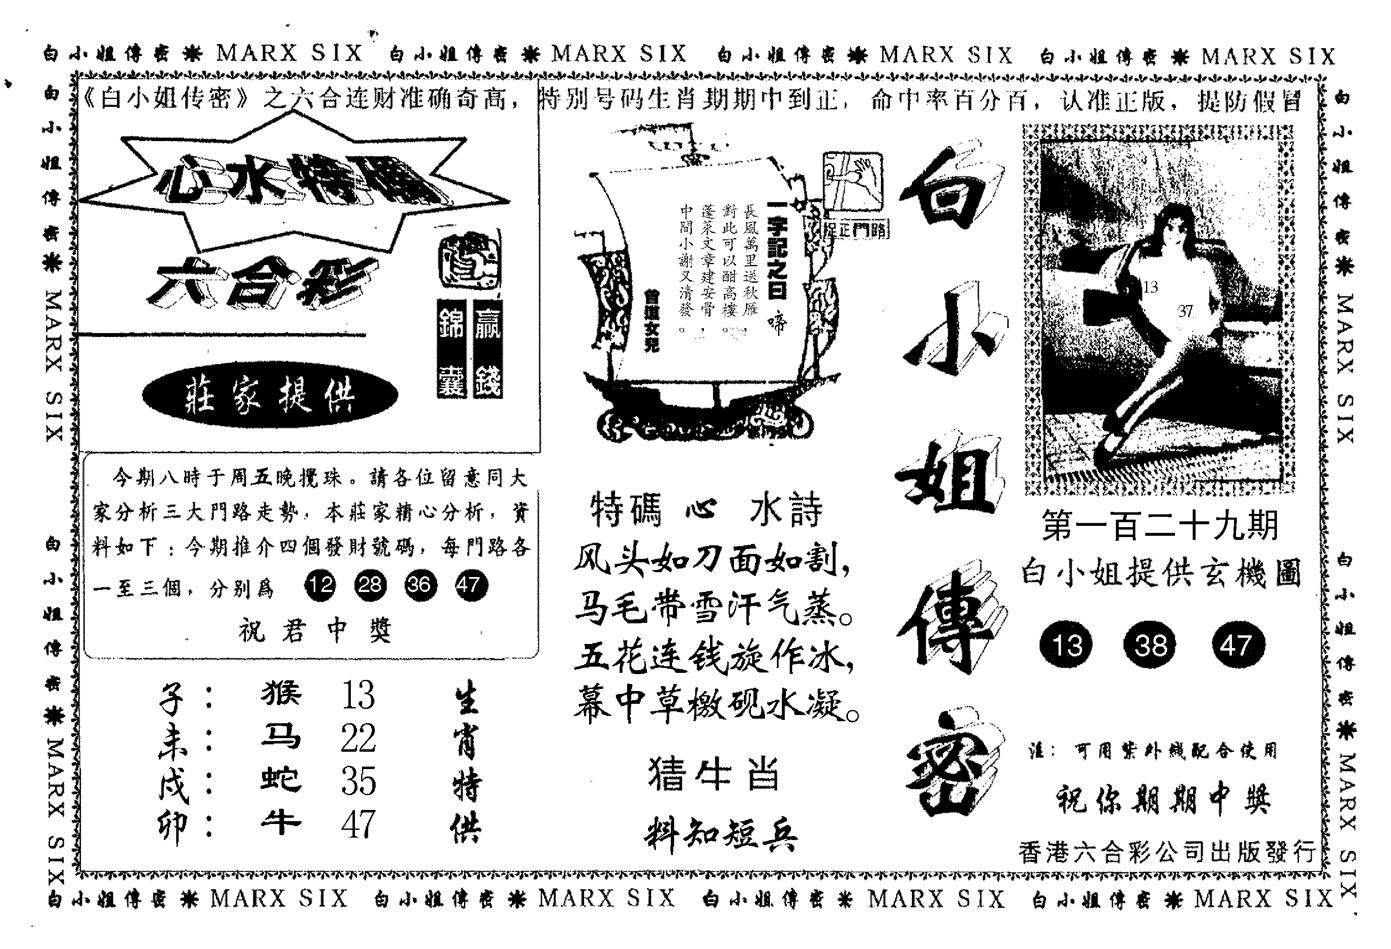 白小姐傳密 MARX SIX 白小姐傳密 MARX SIX 白小姐傳密 MARX SIX 白小姐傳密 MARX SIX
《白小姐传密》之六合连财准确奇高，特别号码生肖期期中到正，命中率百分百，认准正版，提防假冒
心水特碼
六合彩
贏錢
錦囊
莊家提供
今期八時于周五晚攪珠。請各位留意同大
家分析三大門路走勢，本莊家精心分析，資
料如下：今期推介四個發財號碼，每門路各
一至三個，分别爲 12 28 36 47
祝君中獎
子： 猴 13
未： 马 22
戌： 蛇 35
卯： 牛 47
生肖特供
一字記之曰 啼
長風萬里送秋雁
對此可以酣高樓，
蓬萊文章建安骨，
中間小謝又清發。
曾道女兒
捉正門路
特碼 心 水詩
风头如刀面如割，
马毛带雪汗气蒸。
五花连钱旋作冰，
幕中草檄砚水凝。
猜牛肖
料知短兵
白小姐傳密
13
37
第一百二十九期
白小姐提供玄機圖
13 38 47
注：可用紫外线配合使用
祝你期期中獎
香港六合彩公司出版發行
白小姐傳密 MARX SIX
白小姐傳密 MARX SIX
白小姐傳密 MARX SIX
白小姐傳密 MARX SIX
白小姐傳密 MARX SIX 白小姐傳密 MARX SIX 白小姐傳密 MARX SIX 白小姐傳密 MARX SIX